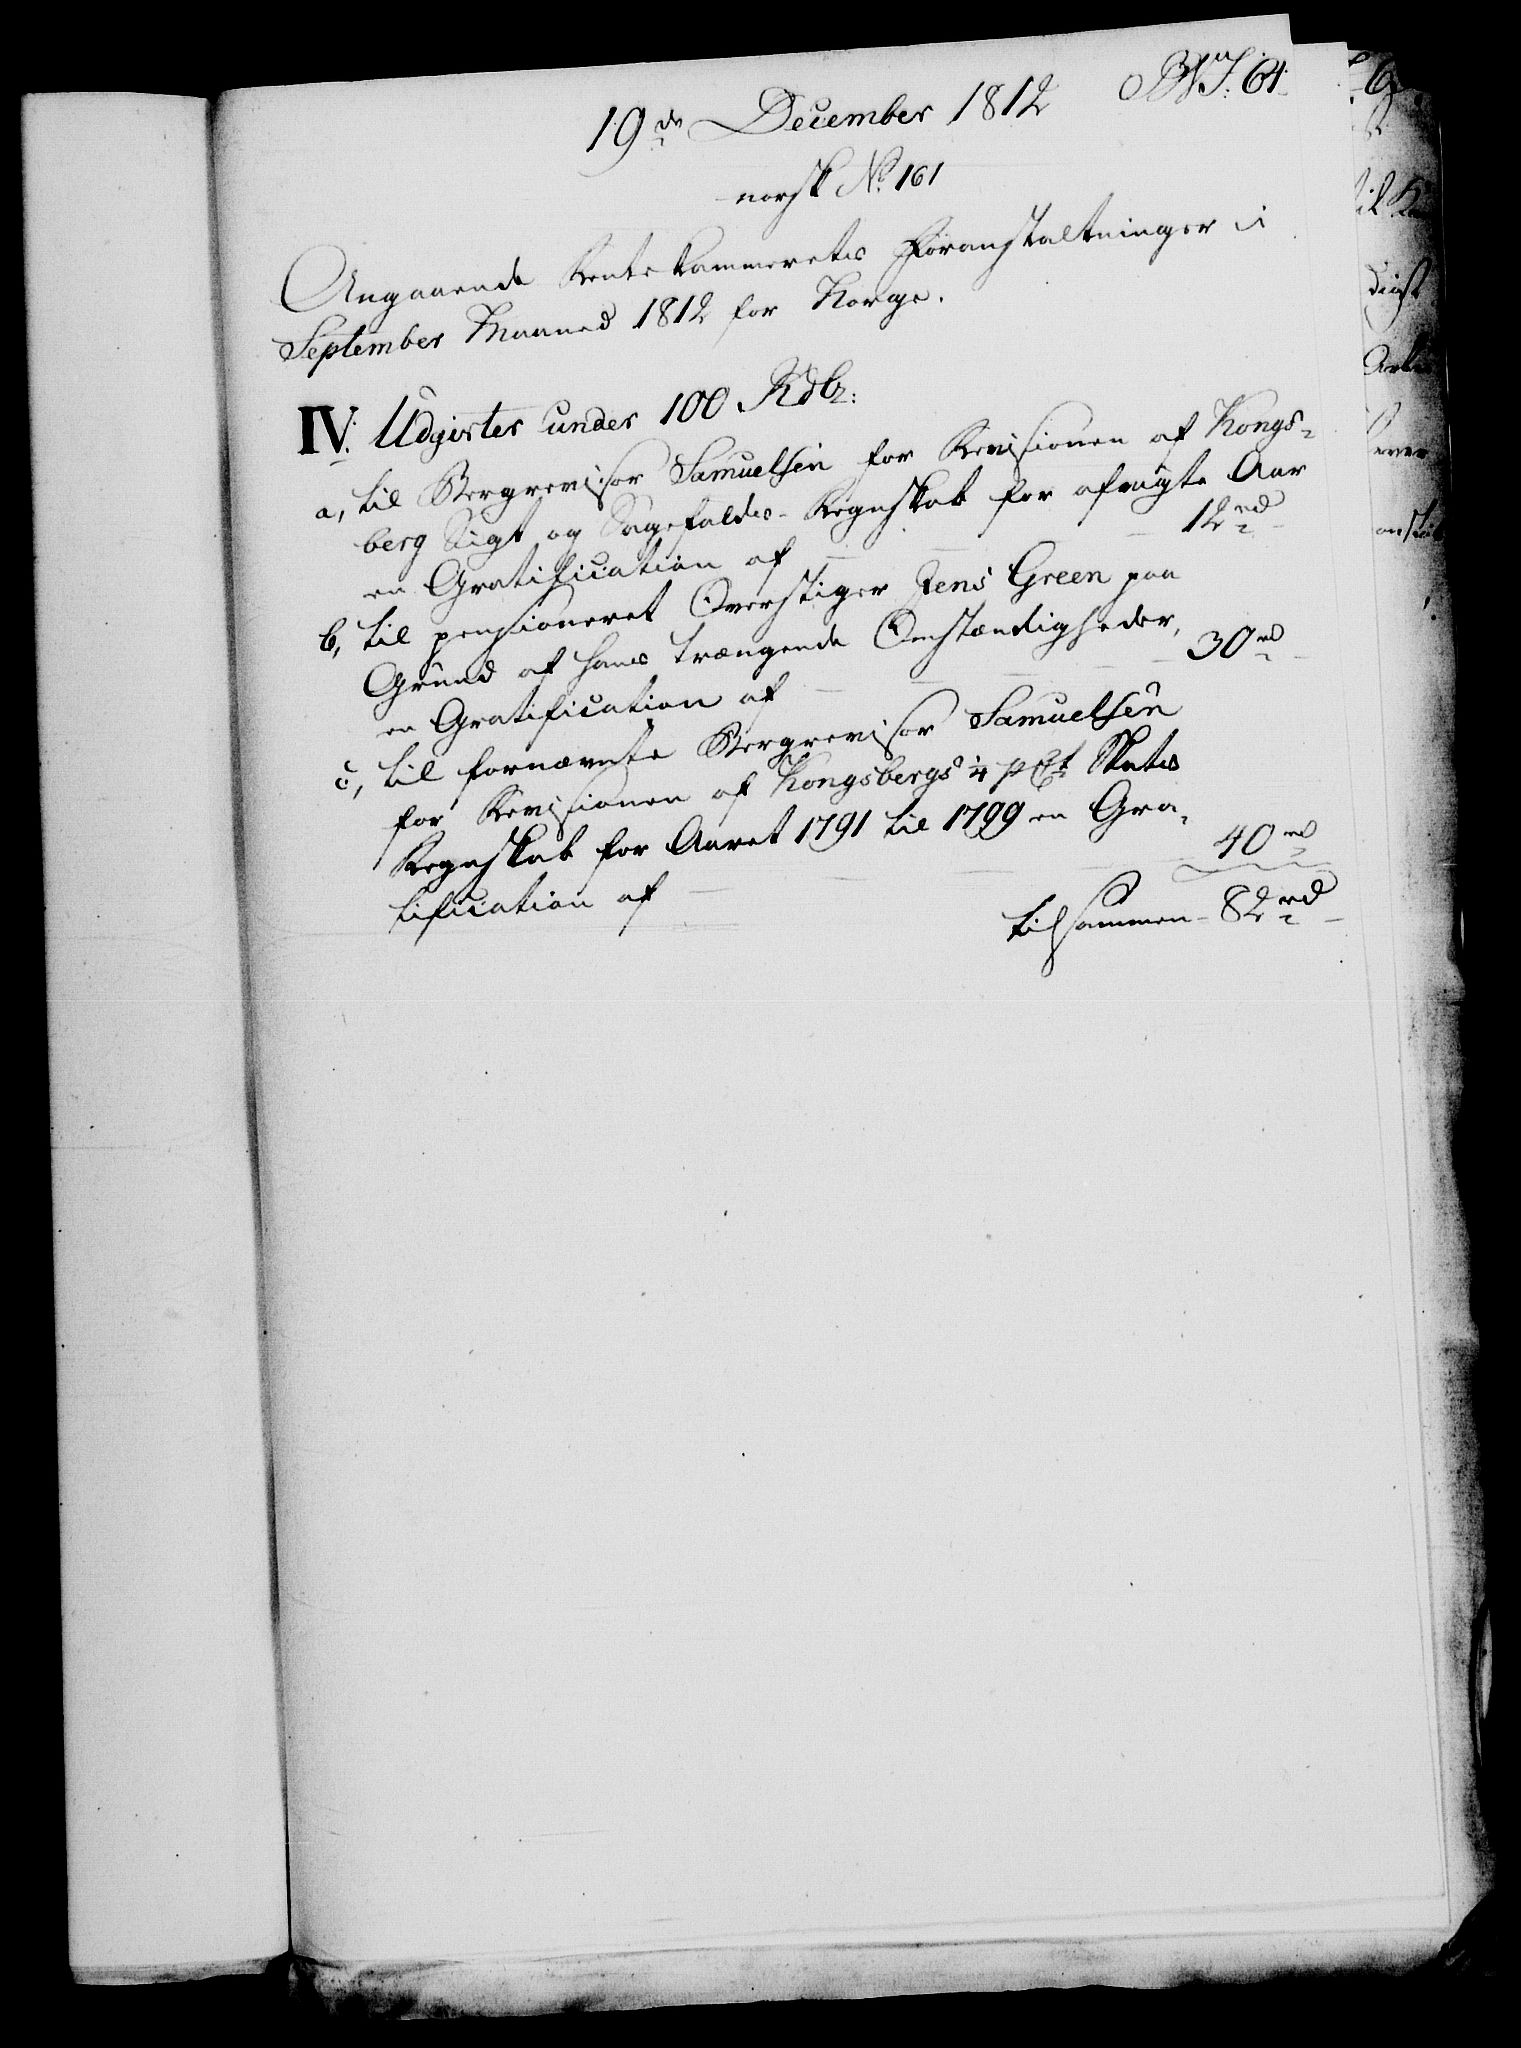 19de December 1812
No: 61.
norsk No 161
Angaaende Rentekammerets Foranstaltninger i
September Maaned 1812 for Norge.
IV. Udgivter under 100 Rdlr:
a, til Bergrevisor Samuelsen for Revisionen af Kongs-
berg Sigt og Sagefalds-Regnskab for afvigte Aar
en Gratification af — — — 12rd
b, til pensioneret Overstiger Jens Green paa
Grund af hans trængende Omstændigheder,
en Gratification af — — — 30rd
c, til fornævnte Bergrevisor Samuelsen
for Revisionen af Kongsbergs 1/4 pCt Skats
Regnskab for Aaret 1791 til 1799 en Gra-
tification af — — — 40rd
tilsammen - 82rd